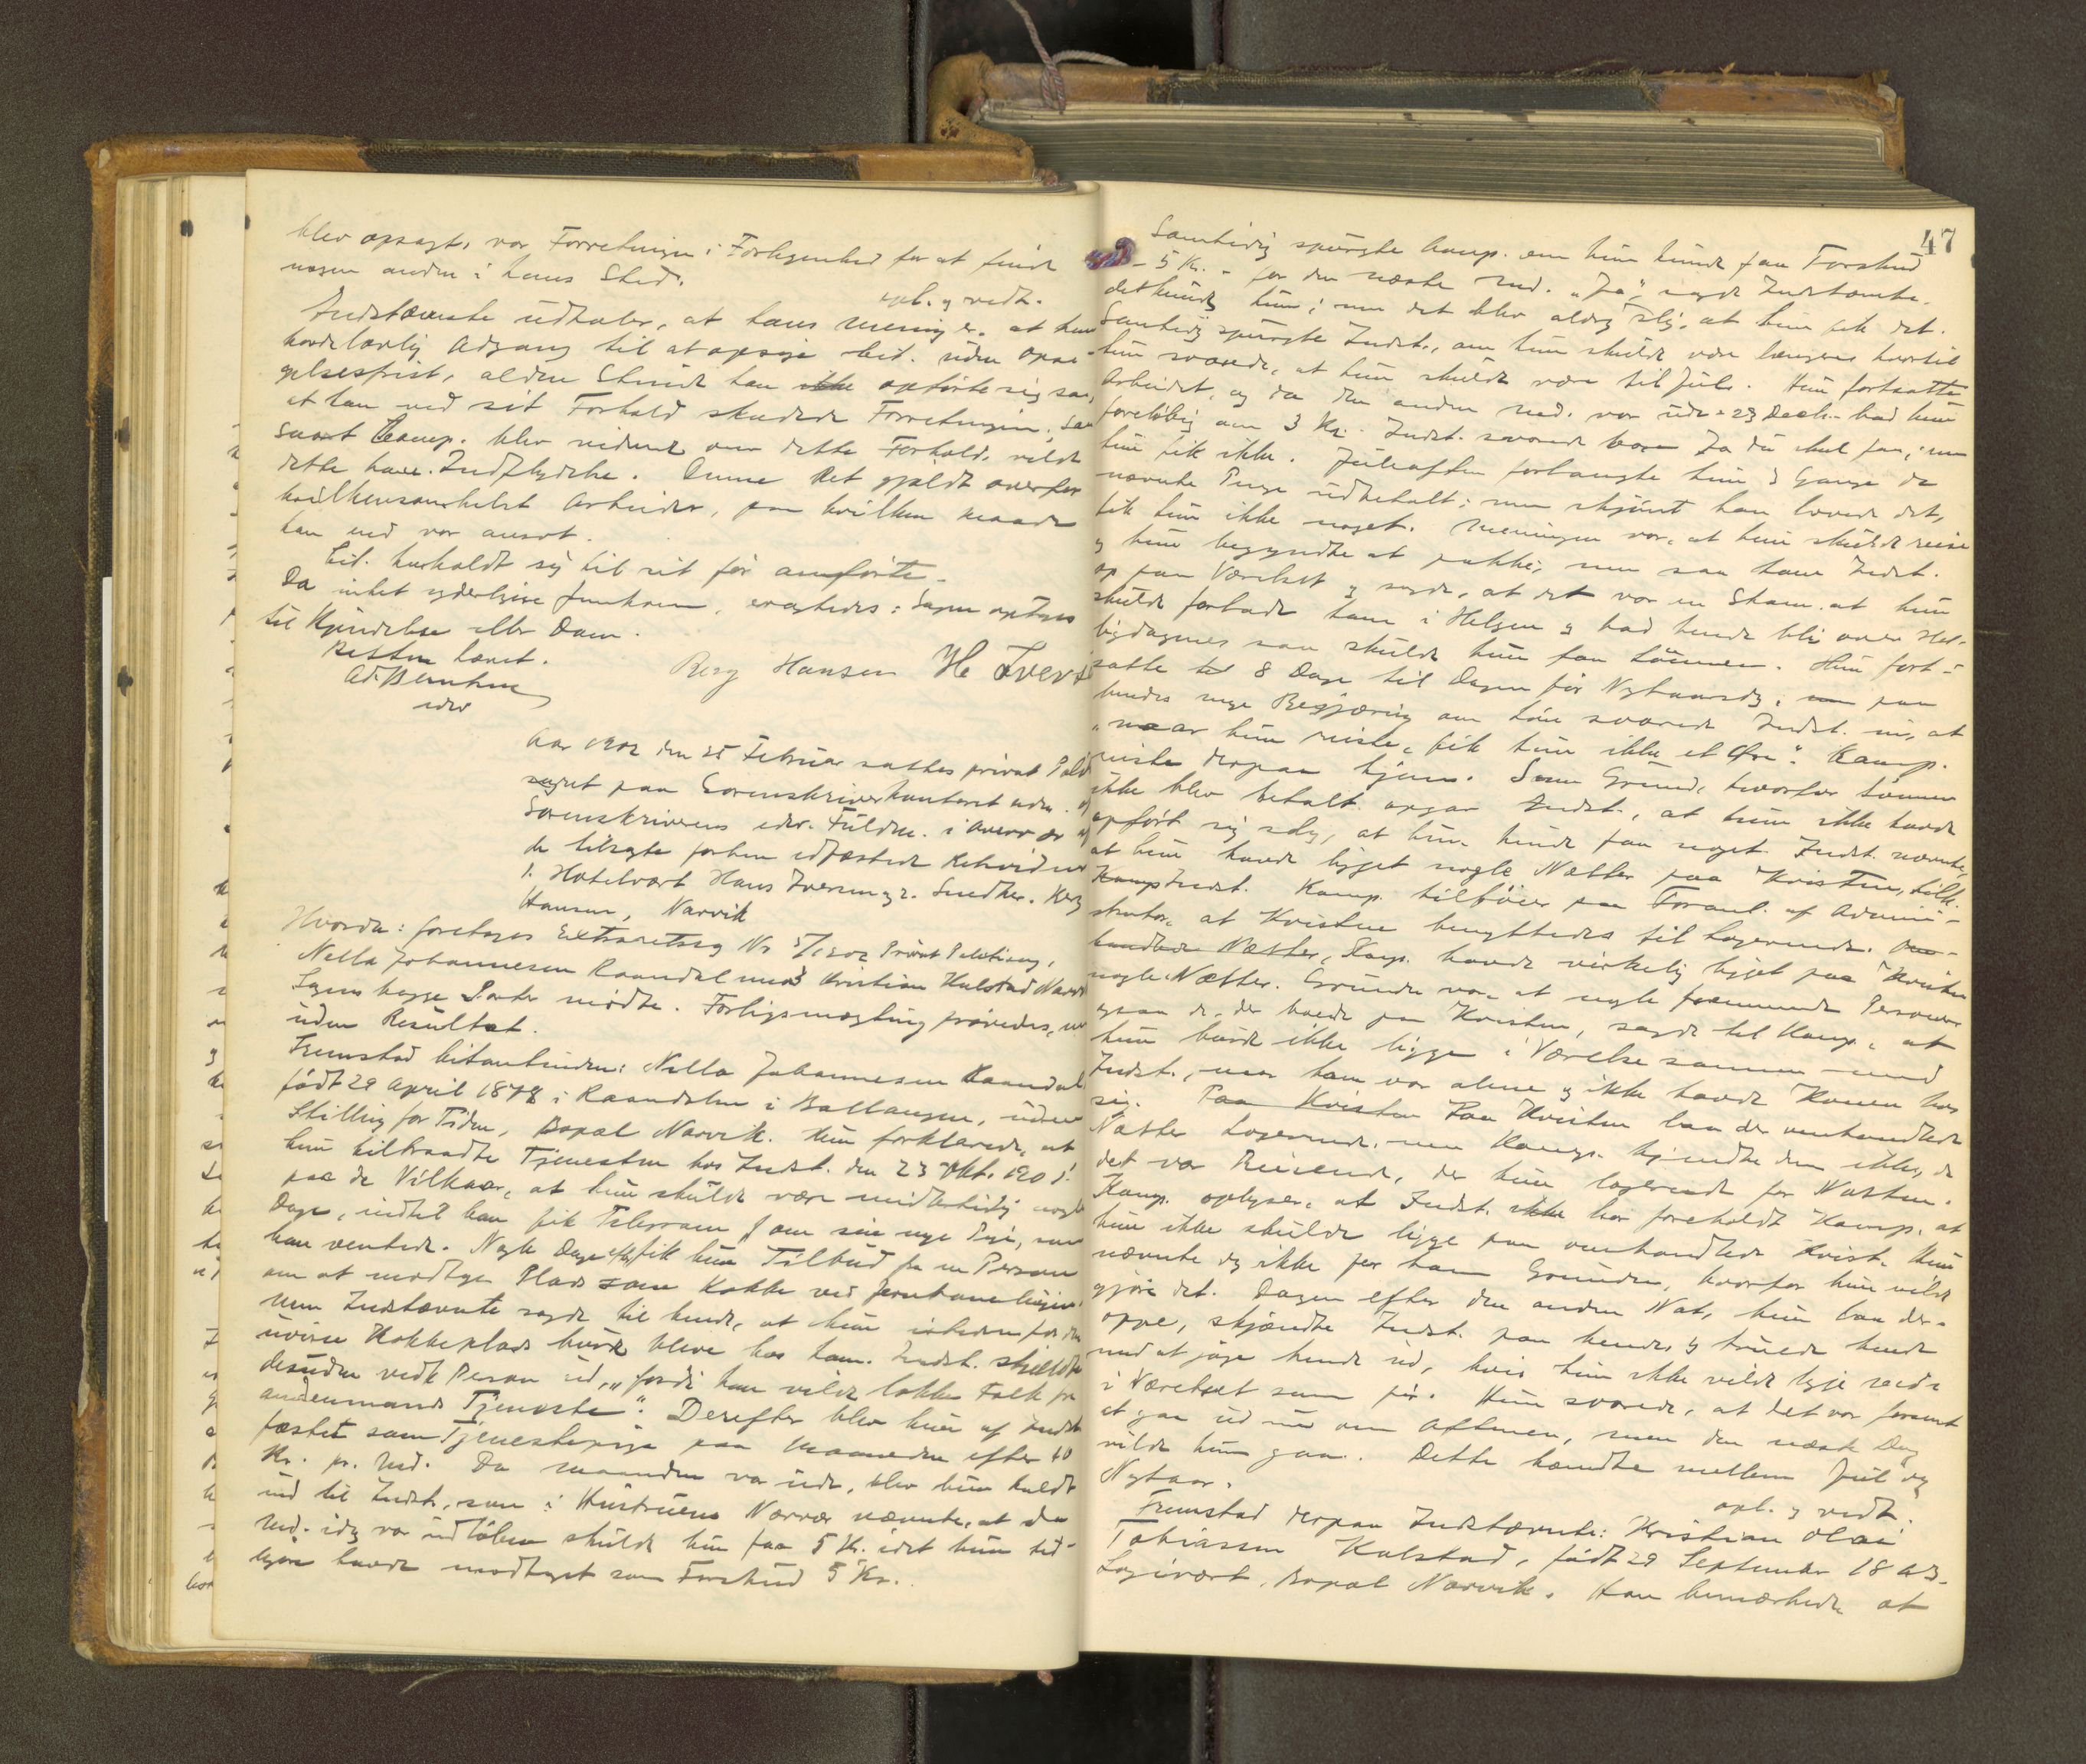 blev opsagt, var Forretningen i Forlegenhed for at finde
nogen anden i hans Sted.
opl. og vedt.
Indstævnte udtaler, at hans Mening er, at han
havde lovlig Adgang til at opsige Cit. uden Opsi-
gelsesfrist, alden Stund han ikke opførte sig saa,
at han ved sit Forhold skadede Forretningen; saa
snart Komp. blev vidende om dette Forhold, vilde
dette have Indflydelse. Denne Ret gjældt overfor
hvilkensomhelst Arbeider, paa hvilken Maade
han end var ansat.
Cit. henholdt sig til sit før anførte.
Da intet yderligere fremkom, eragtedes: Sagen optages
til Kjendelse eller Dom.
Retten hævet.
edsv
Berg Hansen H Ivers
Aar 1902 den 25 Februar sattes privat Politi
saget paa Sorenskriverkontoret adm. af
Sorenskriverens edsv. Fuldm. i Overvær af
de tilsagte forhen edfæstede Retsvidner
1. Hotelvært Hans Iversen og 2. Snedker Berg
Hansen, Narvik
Hvorda: foretages Extraretssag No 5/1902 Privat Politisag,
Nella Johannesen Raandal mod Kristian Hulstad Narvik
Sagens begge Parter mødte. Forligsmægling prøvedes, men
uden Resultat.
Fremstod Citantinden: Nella Johannesen Raandal
født 29 April 1878 i Raandalen i Ballangen, uden
Stilling for Tiden, Bopæl Narvik. Hun forklarede, at
hun tiltraadte Tjenesten hos Indst. den 23 Okt. 1901
paa de Vilkaar, at hun skulde være midlertidig nogle
Dage, indtil han fik Telegram om sin nye Pige, som
han ventede. Nogle Dage efter fik hun Tilbud fra en Person
om at modtage Plads som Kokke ved Jernbanelinjen
men Indstævnte sagde til hende, at hun istedenfor den
uvisse Kokkeplads burde blive hos ham. Indst. skjeldte
desuden vedk Person ud, "fordi han vilde lokke Folk fra
andenmands Tjeneste". Derefter blev hun af Indst
fæstet som Tjenestepige paa Maaneden efter 10
Kr. pr. Md. Da Maaneden var ude, blev hun kaldt
ind til Indst., som i Hustruens Nærvær nævnte, at da
Md. idag var udløben skulde hun faa 5 Kr. idet hun tid-
ligere havde modtaget som Forskud 5 Kr.
47
Samtidig spurgte Komp. om hun kunde faa Forskud
- 5 Kr. - for den næste Md. "Ja", sagde Indstævnte,
det kunde hun; men det blev aldrig slig, at hun fik det.
Samtidig spurgte Indst., om hun skulde være længere hertil
hun svarede, at hun skulde være til Jul. Hun fortsatte
Arbeidet, og da den anden Md. var ude - 23 Decb. - bad hun
foreløbig om 3 Kr. Indst. svarede bare Ja du skal faa; men
hun fik ikke. Juleaften forlangte hun 3 Gange de
nævnte Penge udbetalt; men skjønt han lovede det,
fik hun ikke noget. Meningen var, at hun skulde reise
og hun begyndte at pakke; men saa kom Indst.
op paa Værelset og sagde, at det var en Skam, at hun
skulde forlade ham i Helgen og bad hende bli over Hel-
ligdagene saa skulde hun faa Lønnen. Hun fort-
satte 8 Dage til Dagen før Nytaarsdag; paa
hendes nye Begjæring om Løn svarede Indst. nei, at
"naar hun reiste, fik hun ikke et Øre". Komp.
reiste derpaa hjem. Som Grund, hvorfor Lønnen
ikke blev betalt opgav Indst., at hun ikke havde
opført sig slig, at hun kunde faa noget. Indst. nævnte,
at hun havde ligget nogle Nætter paa Kvisten,
Indst. Komp. tilføier paa Foranl. af Admini-
strator, at Kvisten benyttedes til Logerende.
Nætter, Komp. havde virkelig ligget paa Kvisten
nogle Nætter. Grunden var, at nogle fremmede Personer
ogsaa de, der boede paa Kvisten, sagde til Komp., at
hun burde ikke ligge i Værelse sammen med
Indst., naar han var alene og ikke havde Konen hos
sig. Paa Kvisten Paa Kvisten laa de omhandlede
Nætter Logerende, men Komp. kjendte dem ikke, da
det var Reisende, der kun logerede for Natten.
Komp. oplyser, at Indst. ikke har foreholdt Komp. at
hun ikke skulde ligge paa omhandlede Kvist. Hun
nævnte dog ikke for ham Grunden, hvorfor hun vilde
gjøre det. Dagen efter den anden Nat, hun laa der-
oppe, skjændte Indst. paa hende og truede hende
med at jage hende ud, hvis hun ikke vilde ligge nede
i Værelset som før. Hun svarede, at det var forsent
at gaa ud nu om Aftenen, men den næste Dag
vilde hun gaa. Dette hændte mellem Jul og
Nytaar.
opl. og vedt.
Fremstod derpaa Indstævnte: Kristian Olai
Tobiassen Hulstad, født 29 September 1863.
Logivært, Bopæl Narvik. Han bemærkede at